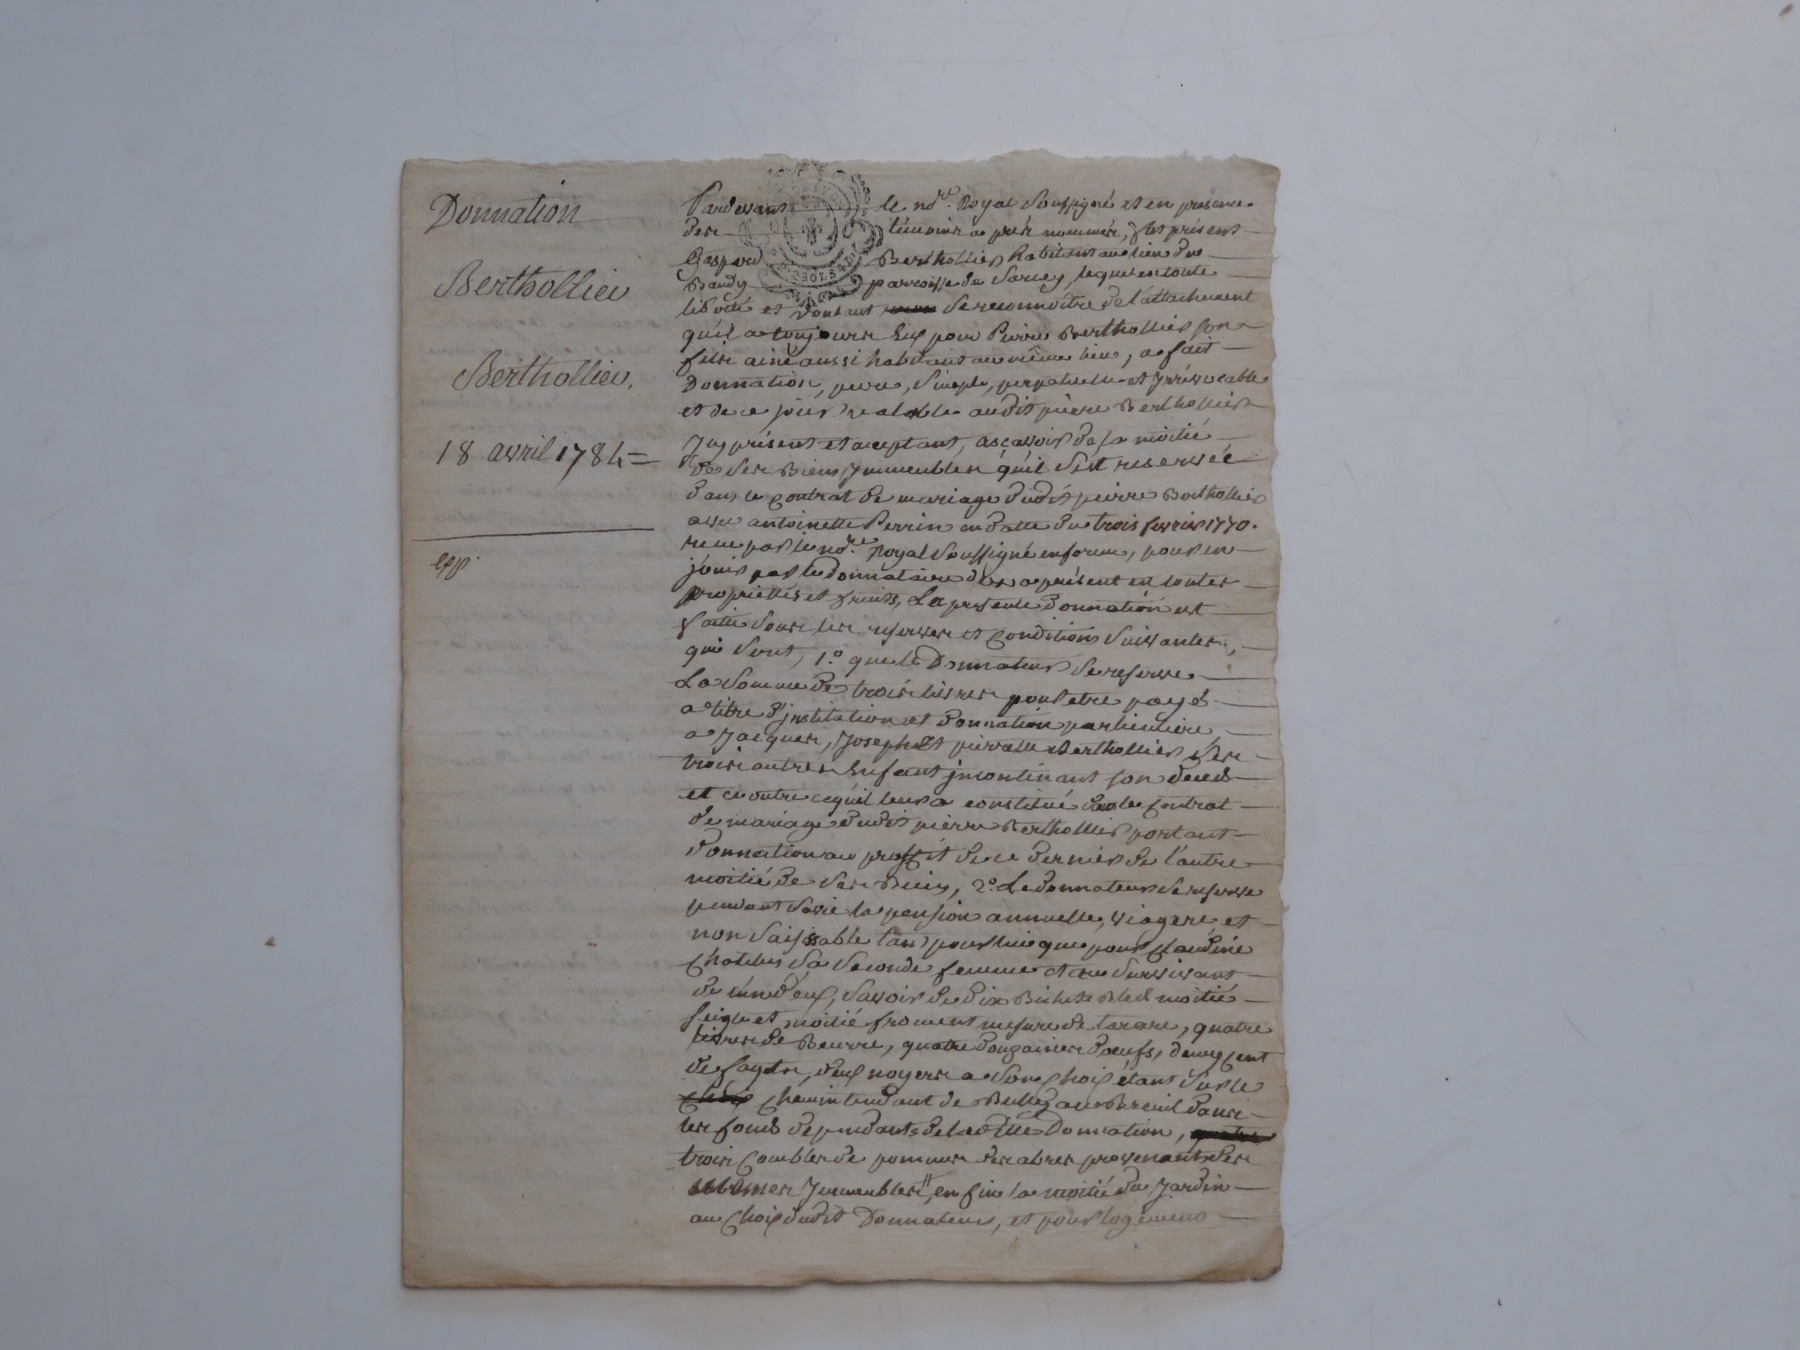 Donnation
Bertholliev
Bertholliev.
18 avril 1784=
Exp.
Pardevant le nore. Royal Soussigné et en presence
des témoins a près nommés, fut présent
Gaspard Berthollier habitant au lieu du
Baudy parroisse de Sarcey, lequel en toute
liberté et voulant Se reconnoître de l'attachement
qu'il a toujours Eux pour Pierre Berthollier son
fils ainé aussi habitant au même lieu, a fait
Donnation, pure, Simple, perpetuelle et Jrrévocable
et de ce jour valable audit pierre Berthollier
Jcy présent et aceptant, ascavoir de la moitié
de Ses Biens Jmmeubles qu'il S'est reservée
dans le Contrat de mariage dudit pierre Berthollier
avec antoinette Perrin en datte du trois fevrier 1770.
recu par le nore. Royal Soussigné en forme, pour en
jouir par le donnataire des a présent en toutes
propriettés et fruits, La presente Donnation est
faitte Sous les reserves et Conditions Suivantes,
qui Sont, 1.o que le Donnateur Se reserve
La Somme de trois livres pour etre payé
a titre d'jnstitution et donnation particuliere
a Jacques, Joseph Et pierrette Berthollier Ses
trois autres Enfants jncontinant son deceds
et ce outre ce qu'il leur a constitué dans le Contrat
de mariage dudit pierre Berthollier portant
donnation au proffit de ce dernier de l'autre
moitié de Ses Biens, 2.o Le donnateur Se reserve
pendant Sa vie la pension annuelle, viagere et
non Saisissable tant pour lui que pour Claudine
Sa Seconde femme et au Survivant
de d'eux, Savoir de dix Bichets Bled moitié
Seigle et moitié froment mesure de tarare, quatre
livres de Beurre, quatre douzaines d'oeufs, cent
de fagots, deux noyers a Son Choix étant Sur le
Chemin tendant de Bully au Breuil dans
les fonds dependants de la ditte Donnation,
trois Combles de pommes des abres provenants des
mêmes Jmmeubles, en fin la moitié du Jardin
au Choix dudit Donnateur, et pour logement